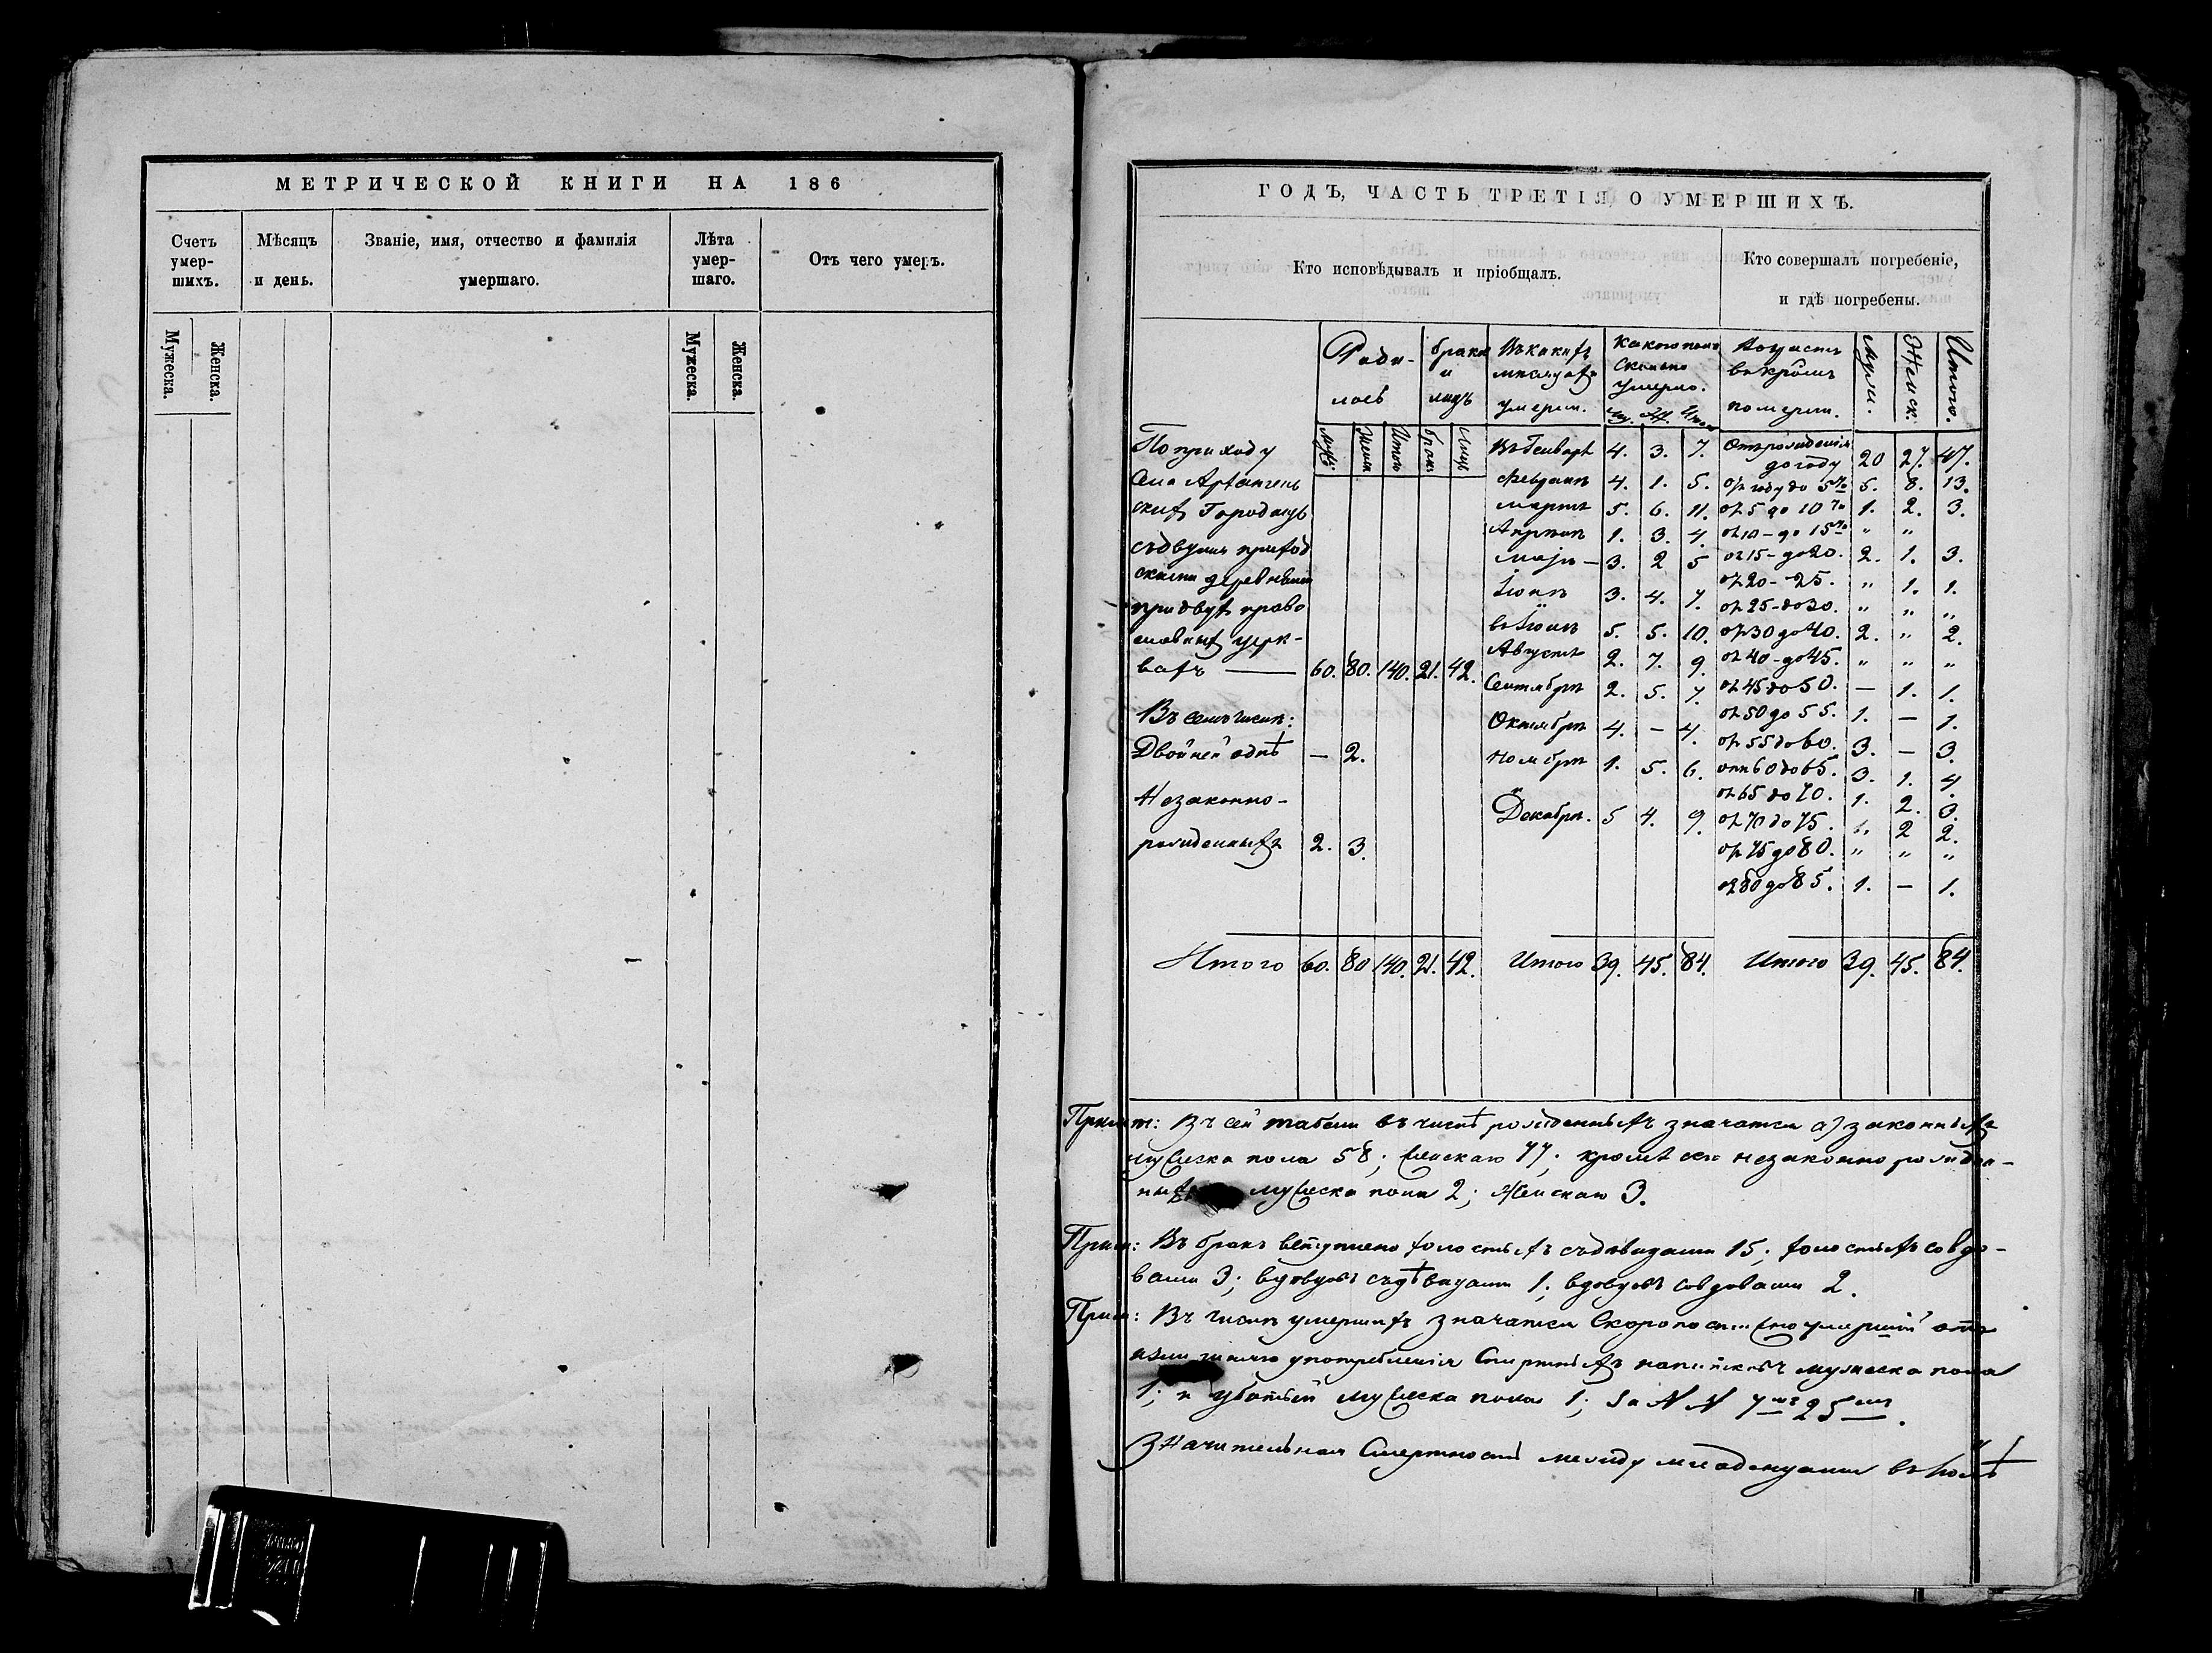 МЕТРИЧЕСКОЙ КНИГИ НА 186
Счетъ умер-шихъ.
Мѣсяцъ и день.
Званіе, имя, отчество и фамилія умершаго.
Лѣта умер-шаго.
Отъ чего умеръ.
Мужеска.
Женска.
Мужеска.
Женска.
ГОДЪ, ЧАСТЬ ТРЕТІЯ О УМЕРШИХЪ.
Кто исповѣдывалъ и пріобщалъ.
Кто совершалъ погребеніе,
и гдѣ погребены.
Роди-
лось
браки
и
лицъ
Въ какихъ
мѣсяцахъ
умерли.
Какого пола
сколько
умерло.
му. Ж. Итого
Возрастъ
въ кромъ
померли.
Муж.
Женск.
Итого.
муж.
женск
Итого
брак
Лицъ
По приходу
Села Архангель
скихъ Городищъ
съ двумя приход
скими деревнями
при двухъ право
славныхъ церк-
вахъ — 60. 80. 140. 21. 42.
Въ семъ числѣ:
Двойней однѣ — 2.
Незаконно-
рожденныхъ 2. 3.
Итого 60. 80 140. 21. 42.
Въ Генварѣ 4. 3. 7.
Февралѣ 4. 1. 5.
мартѣ 5. 6. 11.
Апрѣлѣ 1. 3. 4.
маіѣ — 3. 2 5
Іюнѣ 3. 4. 7.
въ Іюлѣ 5. 5. 10.
Августѣ 2. 7. 9.
Сентябрѣ 2. 5. 7.
Октябрѣ 4. — 4.
Ноябрѣ 1. 5. 6.
Декабрѣ. 5 4. 9.
Итого 39. 45. 84.
Отъ рожденія
до году 20 27. 47.
отъ году до 5ти 5. 8. 13.
отъ 5 до 10ти 1. 2. 3.
отъ 10 - до 15ти " "
отъ 15 - до 20. 2. 1. 3.
отъ 20 - 25. " 1. 1.
отъ 25 - до 30. " " "
отъ 30 до 40. 2. " 2.
отъ 40 - до 45. " " "
отъ 45 до 50. — 1. 1.
отъ 50 до 55. 1. — 1.
отъ 55 до 60. 3. — 3.
отъ 60 до 65. 3. 1. 4.
отъ 65 до 70. 1. 2. 3.
отъ 70 до 75. 2 2.
отъ 75 до 80. " " "
отъ 80 до 85. 1. — 1.
Итого 39. 45. 84.
Примѣт: Въ сей табели въ числѣ рожденныхъ значатся а) законныхъ
мужеска пола 58; женскаго 77; кромѣ сего незаконно рожден-
ныхъ мужеска пола 2; женскаго 3.
Прим: Въ бракъ вступлено холостыхъ съ дѣвицами 15; холостыхъ со вдо-
вами 3; вдовцовъ съ дѣвицами 1; вдовцовъ со вдовами 2.
Прим: Въ числѣ умершихъ значатся Скоропостижно умершій отъ
излишняго употребленія Спиртныхъ напитковъ мужеска пола
1; и убитый мужеска пола 1; за N N 7мъ 25мъ.
Значительная Смертность между младенцами въ Іюлѣ